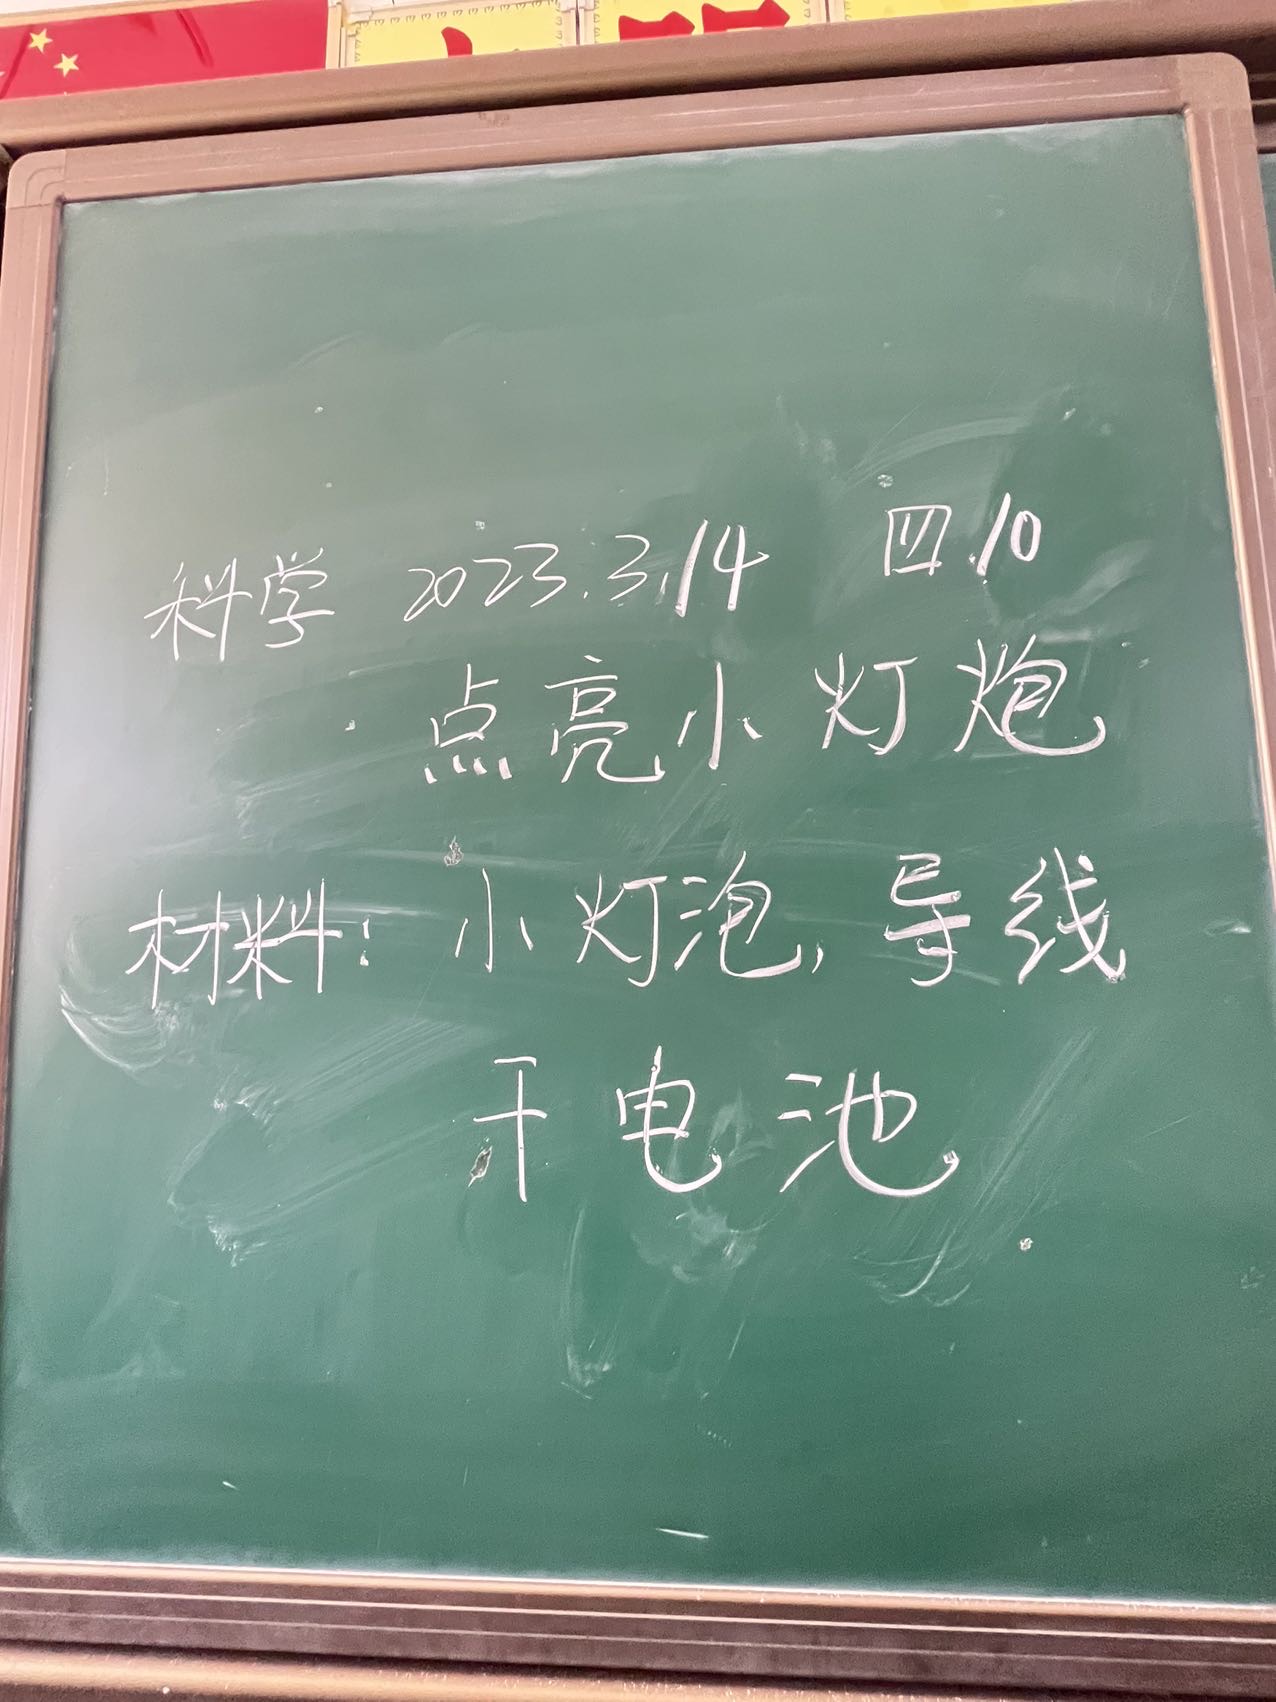 科学 2023.3.14 四.10
点亮小灯炮
材料：小灯泡，导线
干电池